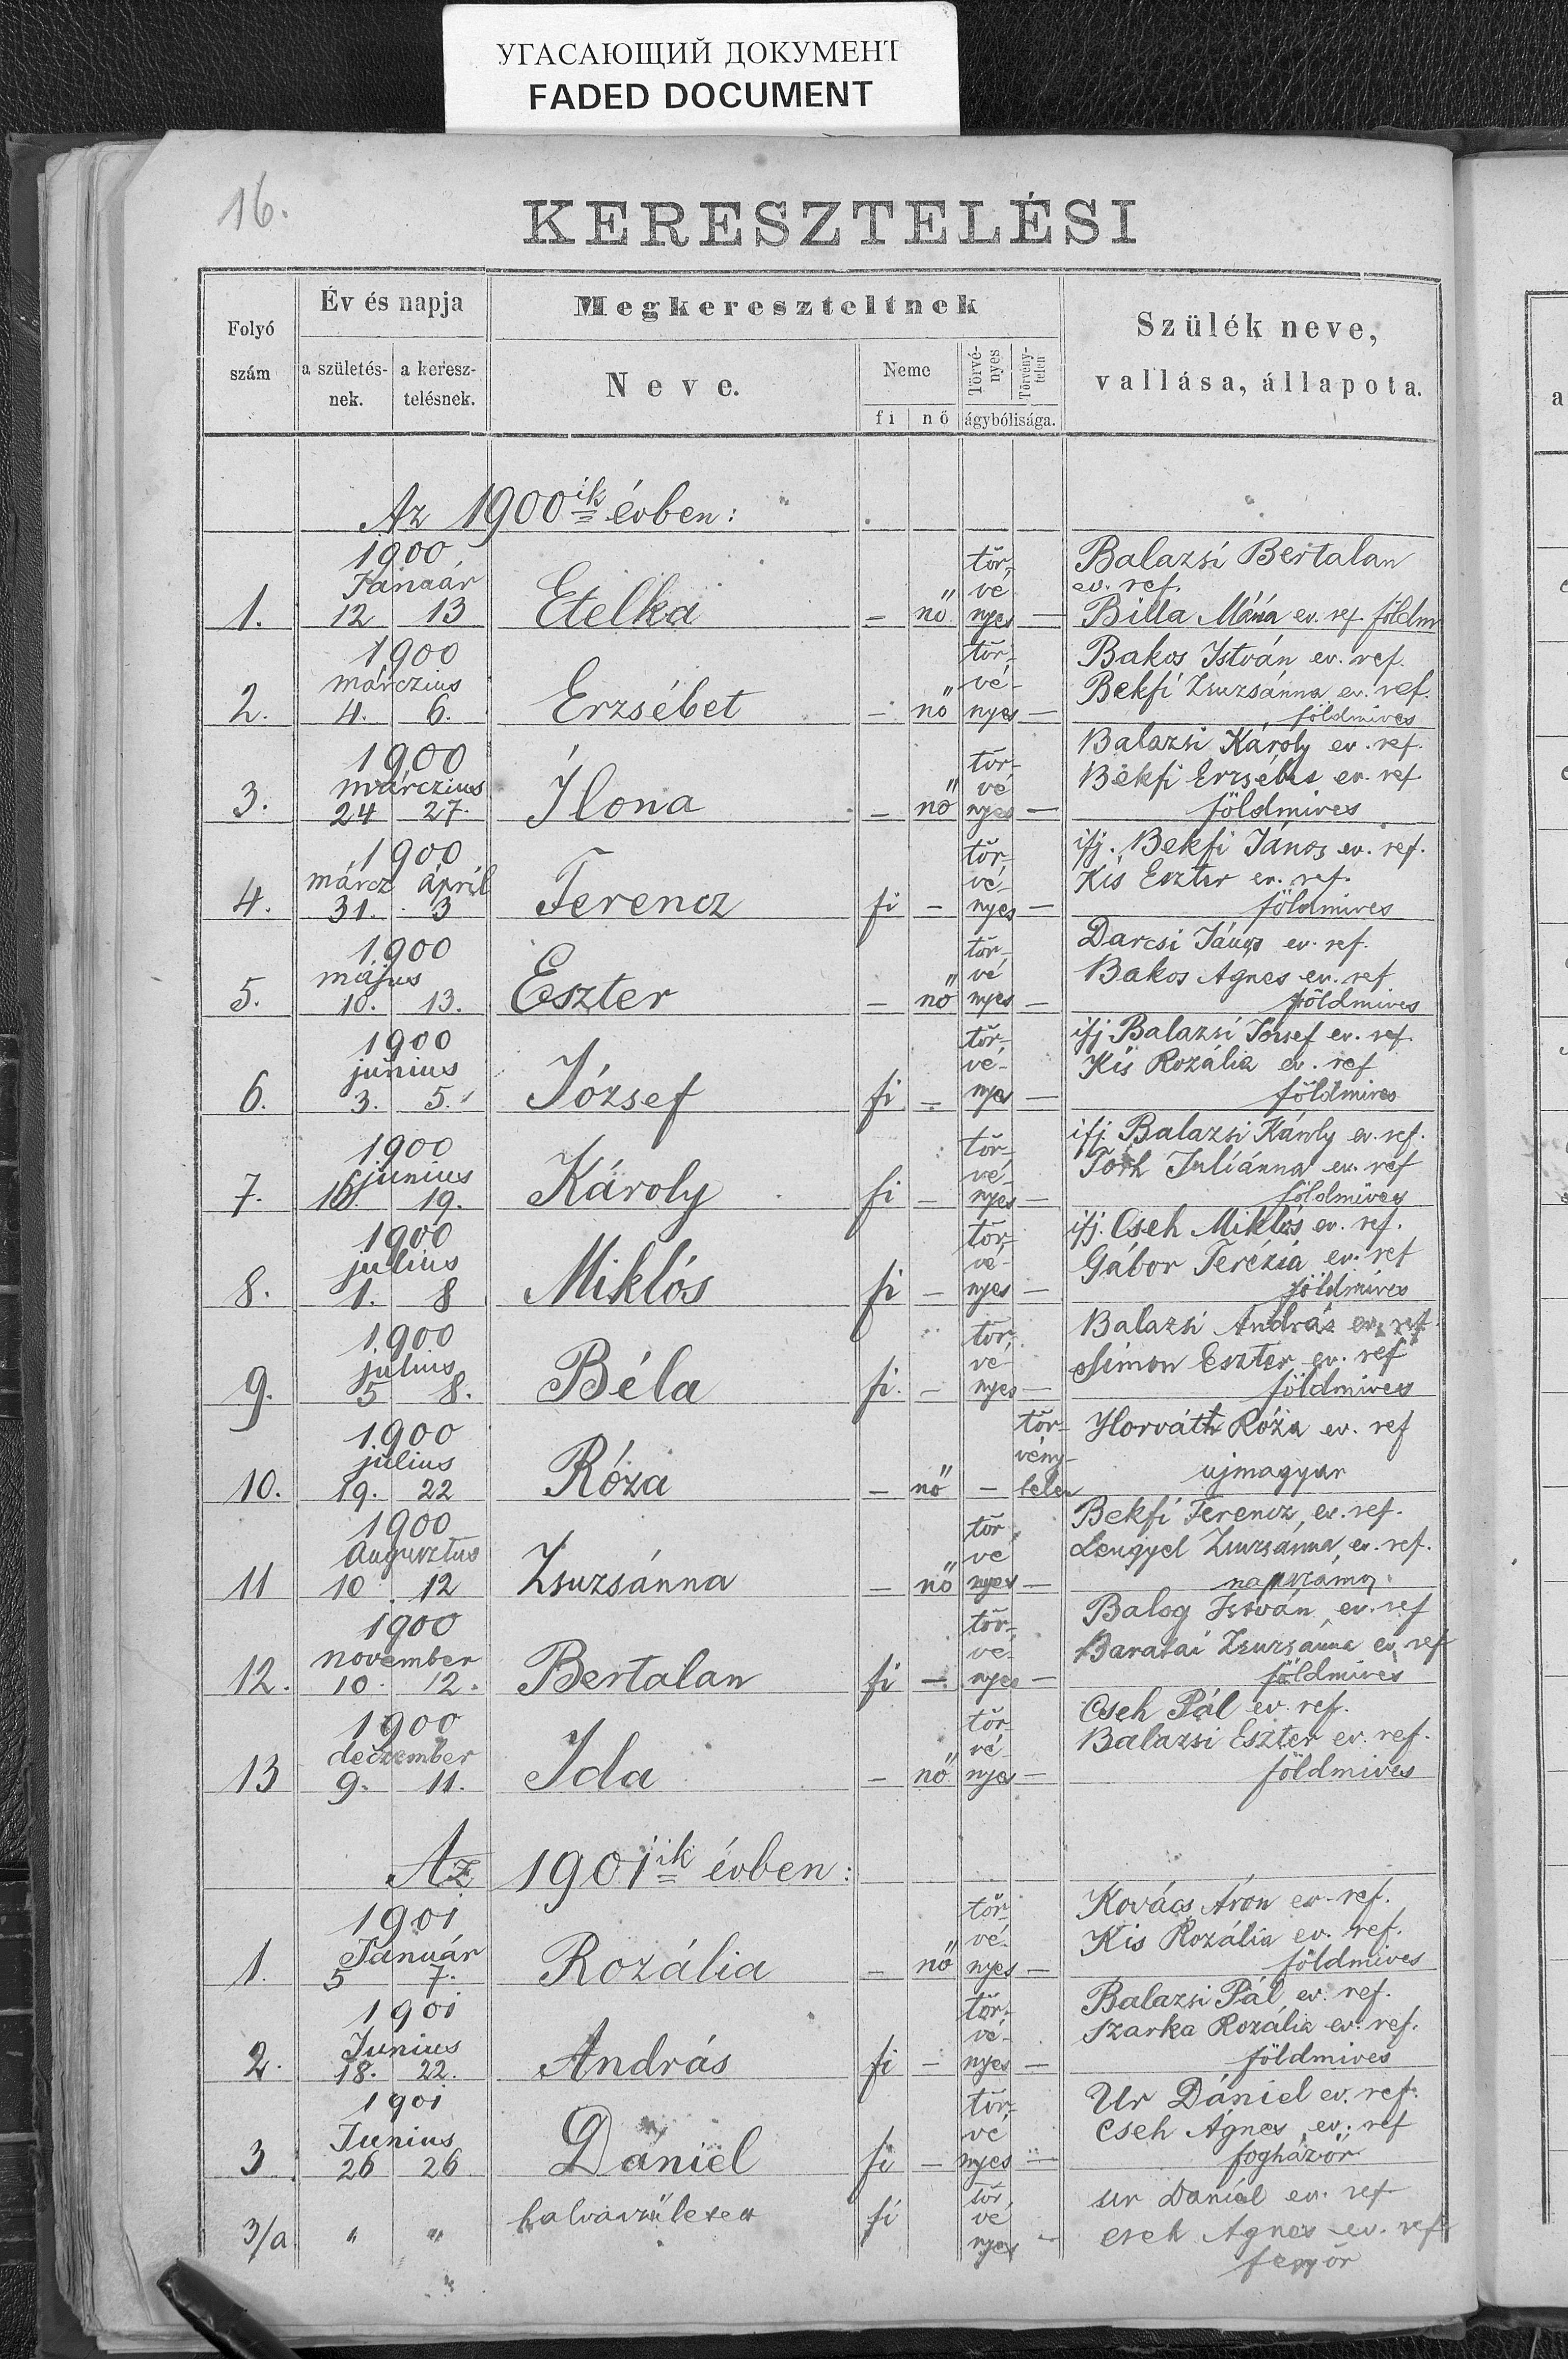 УГАСАЮЩИЙ ДОКУМЕНТ
FADED DOCUMENT
16.
KERESZTELÉSI
Folyó szám
Év és napja
a születés-nek.
a keresz-telésnek.
Megkereszteltnek
Neve.
Neme
fi
nő
Törvé-nyes
Törvény-telen
ágybólisága.
Szülék neve,
vallása, állapota.
Az 1900ik évben:
1900 tör- Balazsi Bertalan
Január vé ev. ref.
1. 12 13 Etelka – nő nyes – Billa Mária ev. ref. földm
1900 tör- Bakos István ev. ref.
márczius vé- Bekfi Zsuzsánna ev. ref.
2. 4. 6. Erzsébet – nő nyes – földmives
1900 tör- Balazsi Károly ev. ref.
márczius vé Bekfi Erzsébet ev. ref.
3. 24 27. Ilona – nő nyes – földmives
1900 tör- ifj. Bekfi János ev. ref.
márcz ápril vé- Kis Eszter ev. ref.
4. 31. 3 Ferencz fi – nyes – földmives
1900 tör- Darcsi János ev. ref.
május vé Bakos Agnes ev. ref
5. 10. 13. Eszter – nő nyes – földmives
1900 tör- ifj Balazsi József ev. ref.
junius vé- Kis Rozália ev. ref
6. 3. 5. József fi – nyes – földmives
1900 tör- ifj. Balazsi Károly ev. ref.
junius vé- Tóth Juliánna ev. ref
7. 16. 19. Károly fi – nyes – földmives
1900 tör- ifj. Cseh Miklós ev. ref.
julius vé- Gábor Terézia ev. ref
8. 1. 8 Miklós fi – nyes – földmives
1900 tör- Balazsi András ev. ref.
julius vé- Simon Eszter ev. ref
9. 5 8. Béla fi. – nyes – földmives
1900 tör- Horváth Róza ev. ref
julius vény-
10. 19. 22 Róza – nő – telen ujmagyar
1900 tör Bekfi Ferencz, ev. ref.
Augusztus vé Lengyel Zsuzsánna, ev. ref.
11 10 12 Zsuzsánna – nő nyes – napszámos
1900 tör- Balog István, ev. ref
november vé- Baratai Zsuzsánna ev. ref
12. 10. 12. Bertalan fi – nyes – földmives
1900 tör- Cseh Pál ev. ref.
deczember vé- Balazsi Eszter ev. ref.
13 9. 11. Ida – nő nyes – földmives
Az 1901ik évben:
1901 tör- Kovács Áron ev. ref.
Január vé- Kis Rozália ev. ref.
1. 5 7. Rozália – nő nyes – földmives
1901 tör- Balazsi Pál ev. ref.
Junius vé- Szarka Rozália ev. ref.
2. 18. 22. András fi – nyes – földmives
1901 tör- Ur Dániel ev. ref.
Junius vé Cseh Ágnes ev. ref
3 26 26 Dániel fi – nyes – fogházőr
tör ur Daniel ev. ref
halvaszületett fi vé cseh Agnes ev. ref
3/a " " nyes –